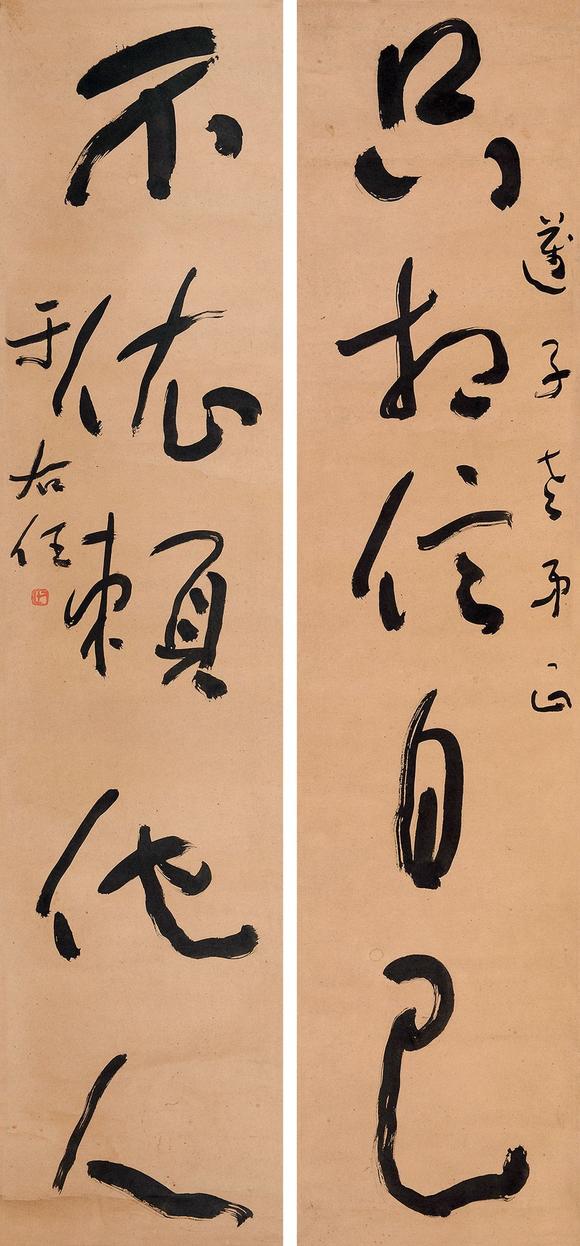 邁子老弟正
只相信自己
不依賴他人
于右任